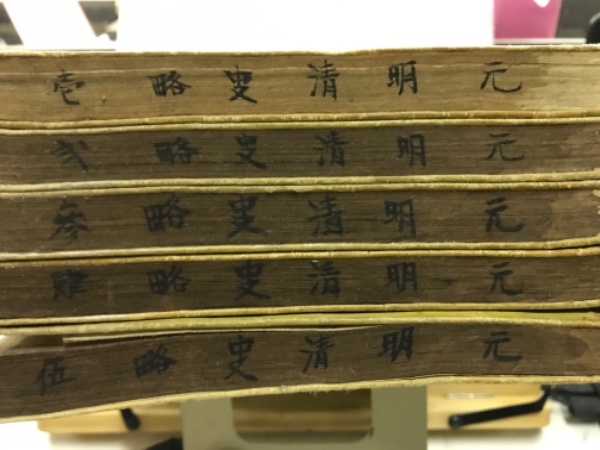 元明清史略壱
元明清史略弐
元明清史略参
元明清史略肆
元明清史略伍